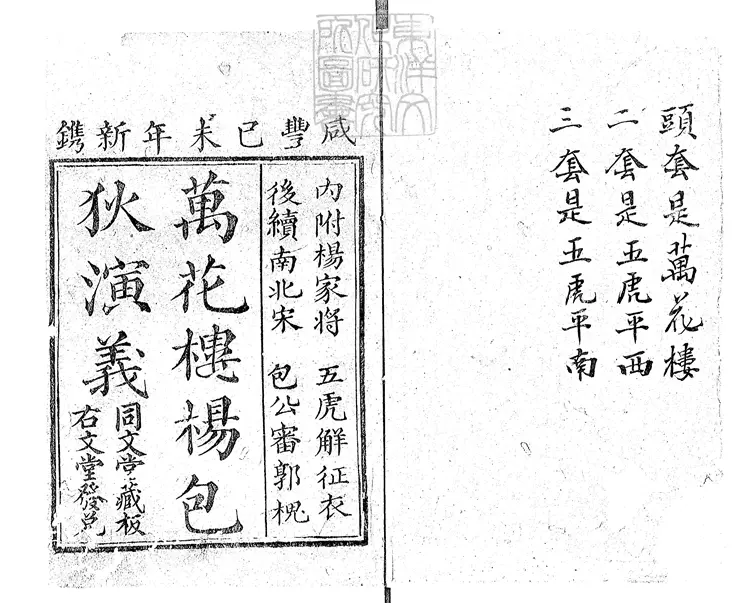 頭套是萬花樓
二套是五虎平西
三套是五虎平南
咸豐已未年新鐫
內附楊家將 五虎解征衣
後續南北宋 包公審郭槐
萬花樓楊包
狄演義
同文堂藏板
右文堂發兌
東洋文化研究所圖書